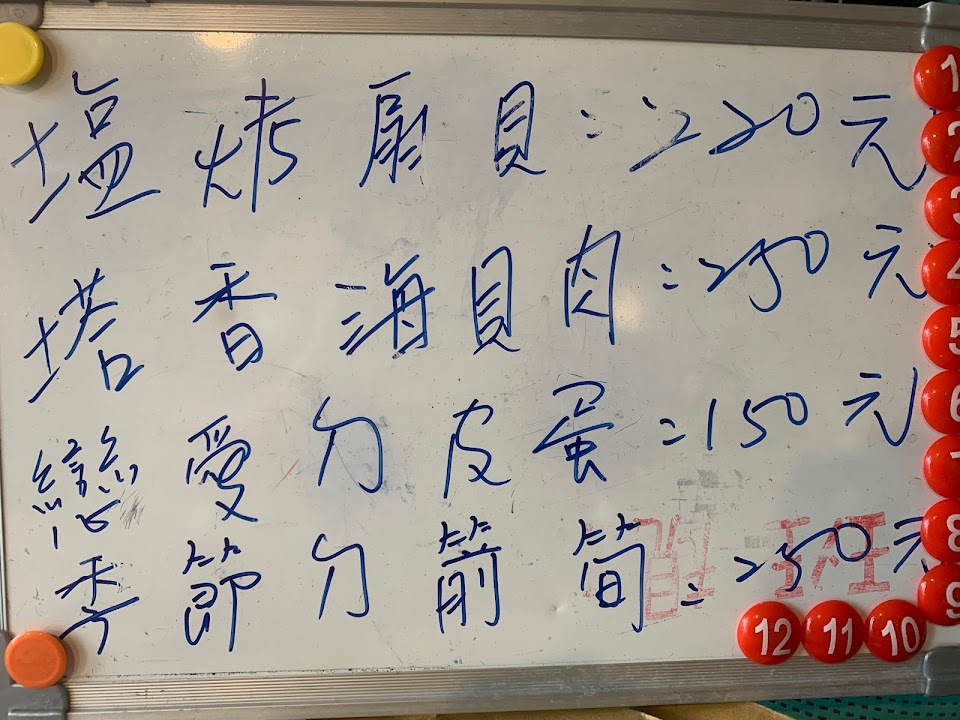 塩烤扇貝=220元
塔香海貝肉=250元
戀愛ㄉ皮蛋=150元
季節ㄉ箭筍=250元
1
2
3
4
5
6
7
8
9
12 11 10